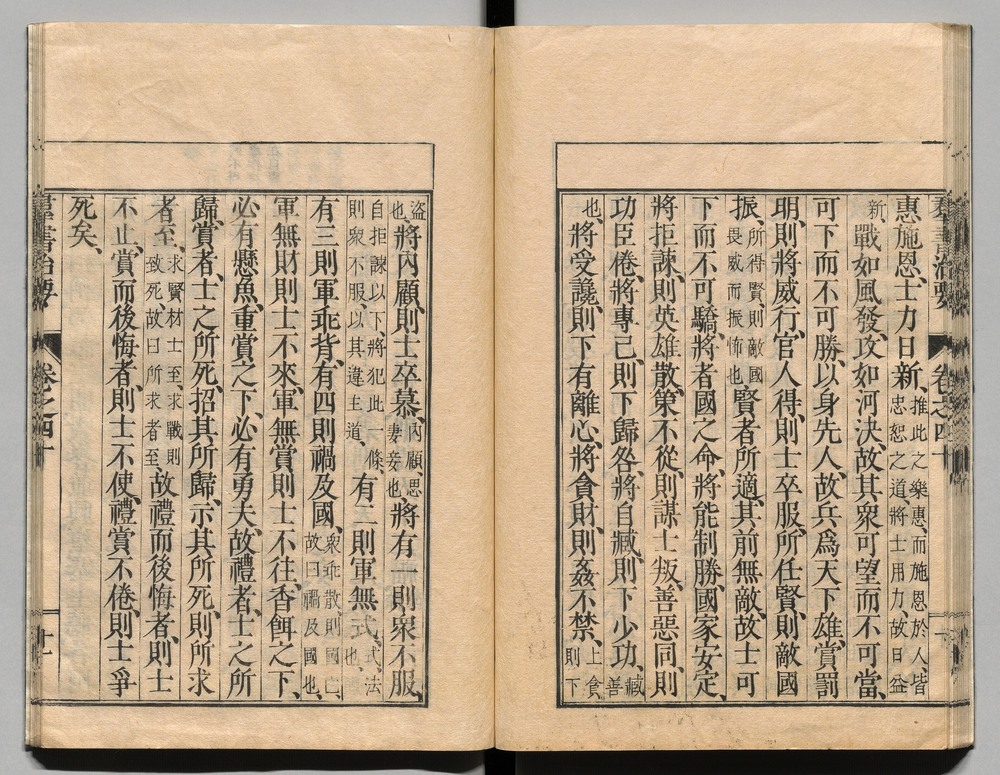 羣書治要 卷之四十 十
惠施恩、士力日新、推此之樂惠、而施恩於人、皆忠恕之道、將士用力、故日益
新、戰如風發、攻如河決、故其衆可望而不可當、
可下而不可勝、以身先人、故兵爲天下雄、賞罰
明、則將威行、官人得、則士卒服、所任賢、則敵國
振、所得賢、則敵國畏敵而振怖也、賢者所適、其前無敵、故士可
下而不可驕、將者國之命、將能制勝、國家安定、
將拒諫、則英雄散、策不從、則謀士叛、善惡同、則
功臣倦、將專己、則下歸咎、將自臧、則下少功、臧善
也、將受讒、則下有離心、將貪財、則姦不禁、上貪則下
盗也、將内顧、則士卒慕、内顧、思妻妾也、將有一則衆不服、
自拒諫以下、將犯此一條、則衆不服、以其違主道、有二則軍無式、式法也、
有三則軍乖背、有四則禍及國、衆乖散、則國亡、故曰禍及國也、
軍無財則士不來、軍無賞則士不往、香餌之下、
必有懸魚、重賞之下、必有勇夫、故禮者、士之所
歸、賞者、士之所死、招其所歸、示其所死、則所求
者至、求賢材士至、求戰則致死、故曰所求者至、故禮而後悔者、則士
不止、賞而後悔者、則士不使、禮賞不倦、則士爭
死矣、
羣書治要 卷之四十 十一